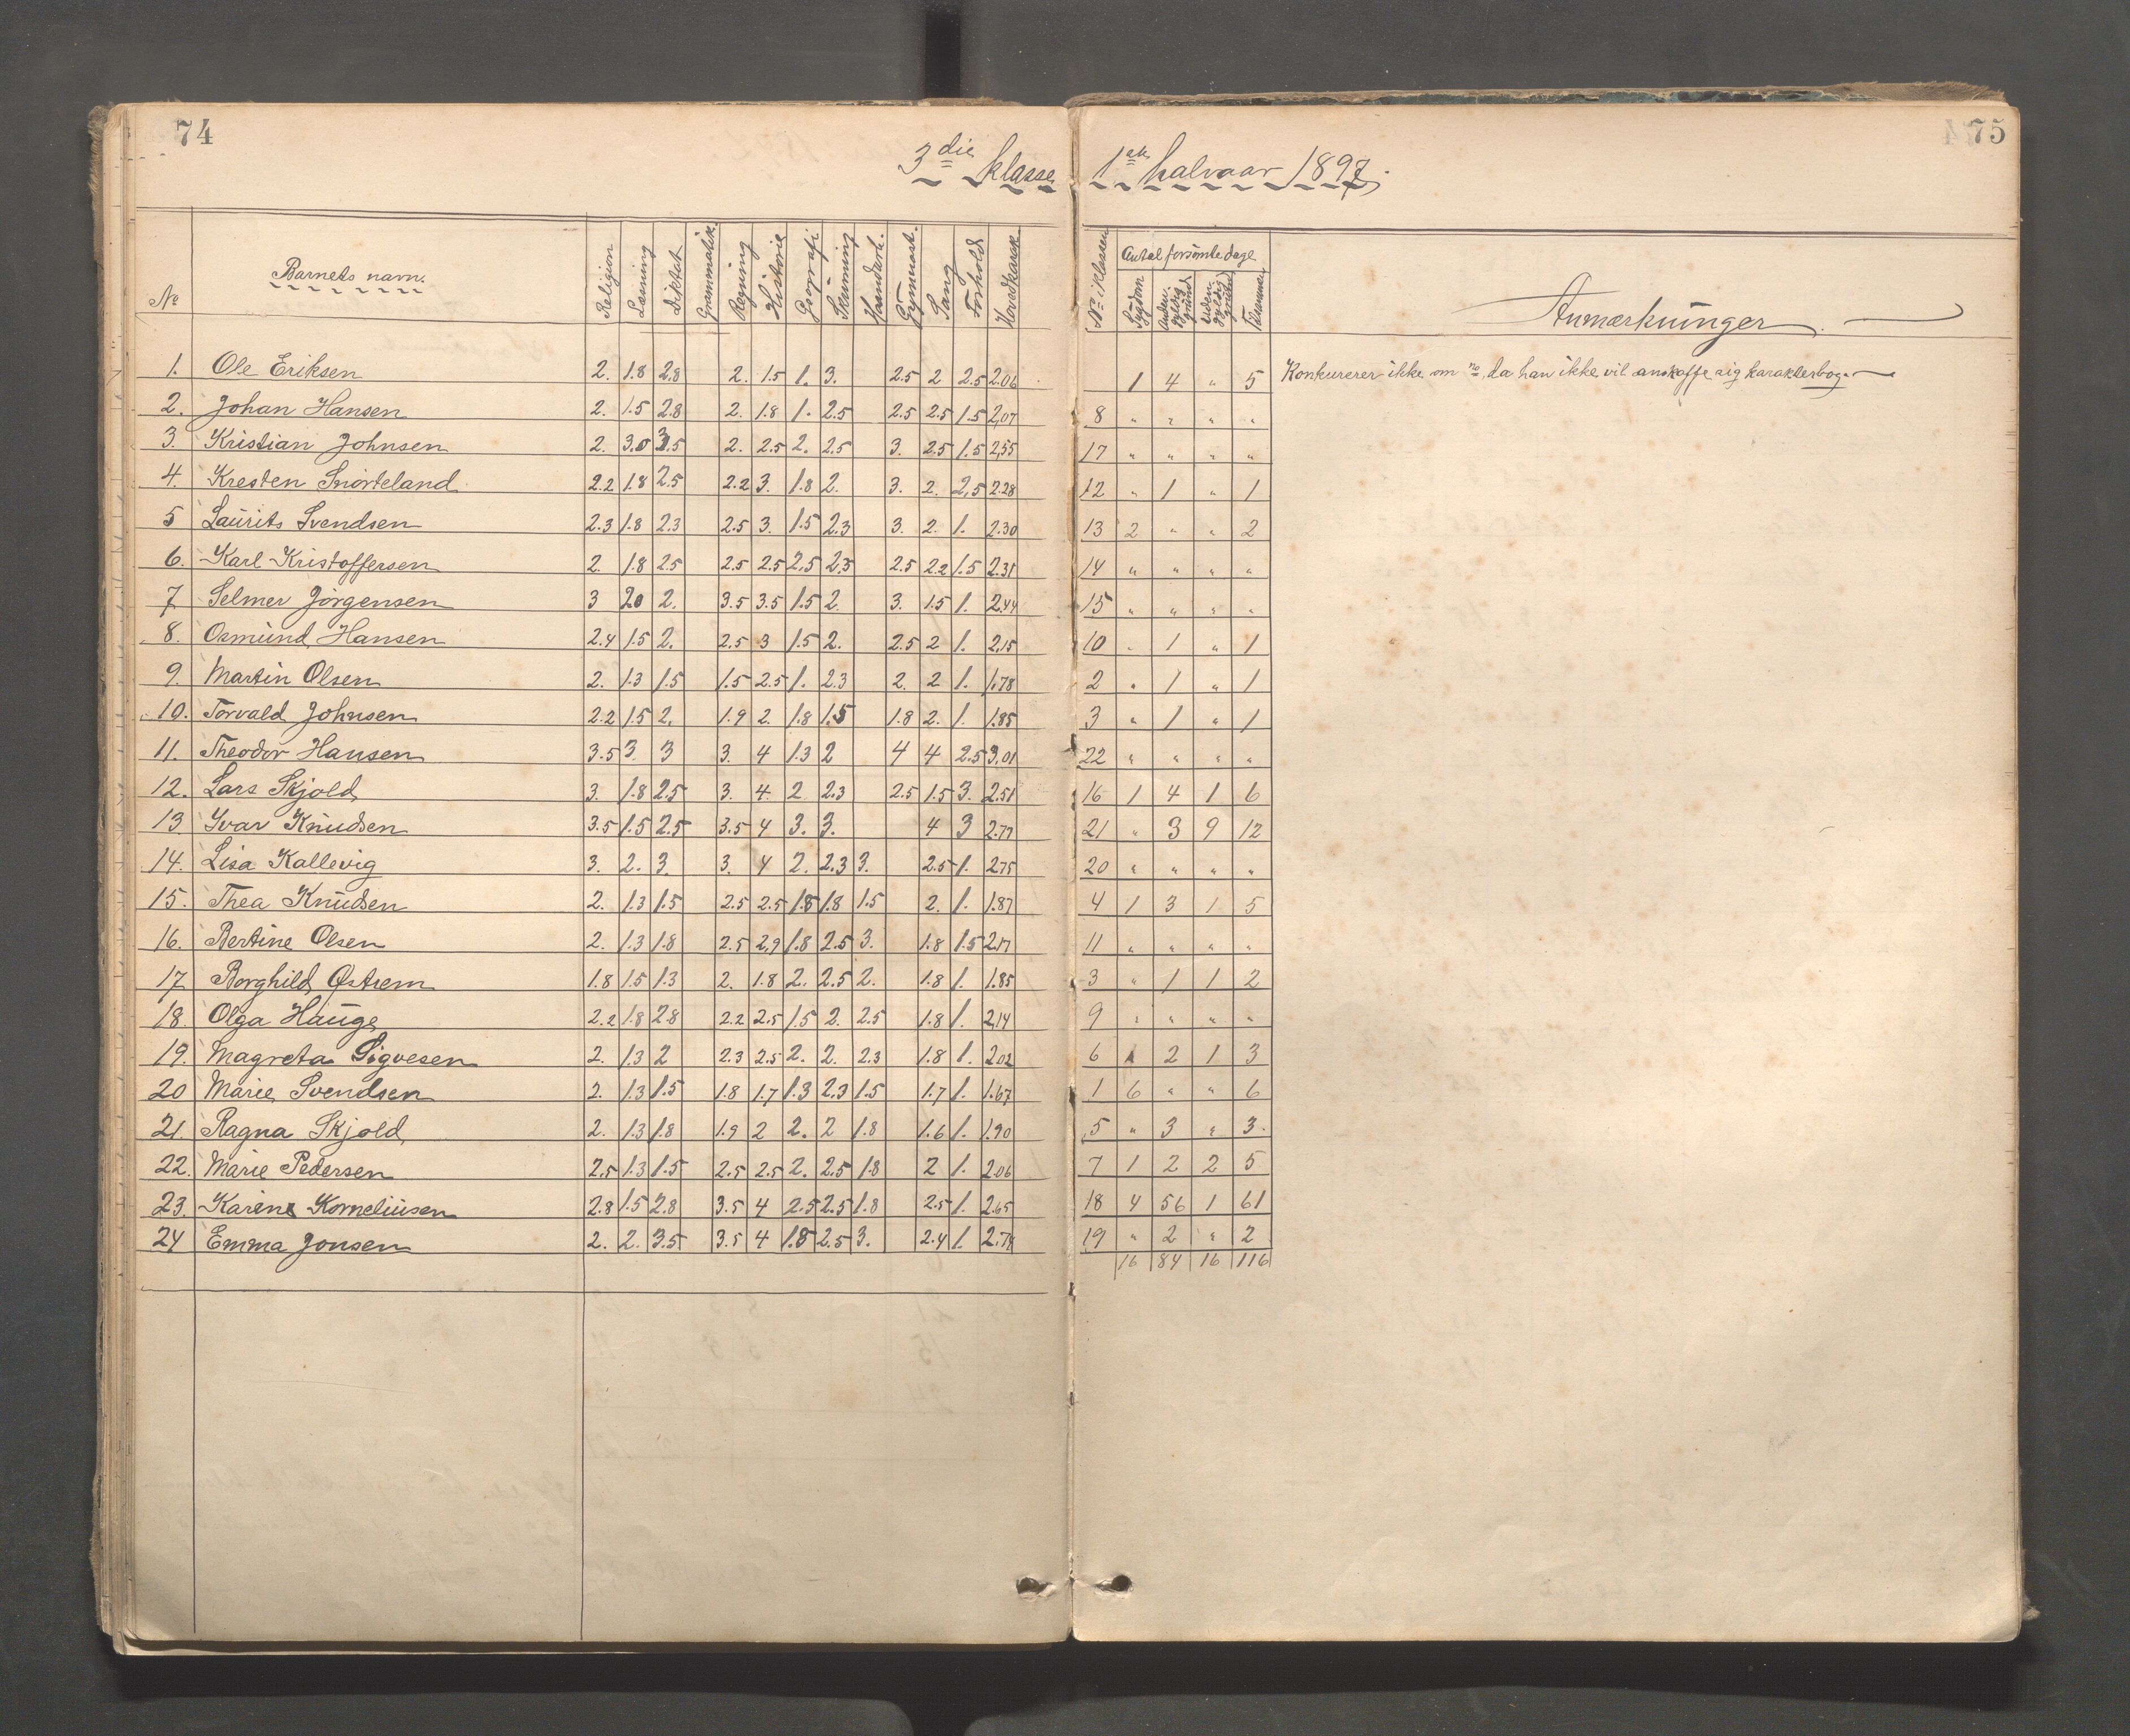 74
75
3die klasse 1ste halvaar 1897.
No Barnets navn. Religion Læsning Diktat Grammatik. Regning Historie Geografi Skrivning Haandarb. Gymnast. Sang Forhold Hovedkarak. No i klassen Antal forsømte dage Sygdom Anden gyldig grund Uden gyldig grund Tilsammen Anmærkninger.
1. Ole Eriksen 2. 1.8 2.8 2. 1.5 1. 3. 2.5 2 2.5 2.06 1 4 " 5 Konkurerer ikke om no, da han ikke vil anskaffe sig karakterbog.
2. Johan Hansen 2. 1.5 2.8 2. 1.8 1. 2.5 2.5 2.5 1.5 2,07 8 " " " "
3. Kristian Johnsen 2. 3.0 3.5 2. 2.5 2. 2.5 3. 2.5 1.5 2,55 17 " " " "
4. Kresten Snørteland 2.2 1.8 2.5 2.2 3. 1.8 2. 3. 2. 2,5 2.28 12 " 1 " 1
5 Laurits Svendsen 2.3 1.8 2.3 2.5 3. 1.5 2.3 3. 2. 1. 2.30 13 2 " " 2
6. Karl Kristoffersen 2. 1.8 2.5 2.5 2.5 2.5 2.5 2.5 2.2 1.5 2.31 14 " " " "
7. Selmer Jørgensen 3 2.0 2. 3.5 3.5 1.5 2. 3. 1.5 1. 2.44 15 " " " "
8. Osmund Hansen 2.4 1.5 2. 2.5 3 1.5 2. 2.5 2 1. 2,15 10 " 1 " 1
9. Martin Olsen 2. 1.3 1.5 1.5 2.5 1. 2.3 2. 2 1. 1.78 2 " 1 " 1
10. Torvald Johnsen 2.2 1.5 2. 1.9 2. 1.8 1.5 1.8 2. 1. 1.85 3 " 1 " 1
11. Theodor Hansen 3.5 3. 3 3. 4 1.3 2 4 4 2.5 3,01 22 " " " "
12. Lars Skjold 3. 1.8 2.5 3. 4. 2 2.3 2.5 1.5 3. 2.51 16 1 4 1 6
13 Ivar Knudsen 3.5 1.5 2.5 3.5 4 3. 3. 4 3 2.77 21 " 3 9 12
14. Lisa Kallevig 3. 2. 3. 3. 4 2. 2.3 3. 2.5 1. 2.75 20 " " " "
15. Thea Knudsen 2. 1.3 1.5 2.5 2.5 1.8 1.8 1.5 2. 1. 1.87 4 1 3 1 5
16. Bertine Olsen 2. 1.3 1.8 2.5 2,9 1.8 2.5 3. 1.8 1.5 2.17 11 " " " "
17 Borghild Østrem 1.8 1.5 1.3 2. 1.8 2. 2.5 2. 1.8 1. 1.85 3 " 1 1 2
18. Olga Hauge 2.2 1.8 2.8 2.2 2.5 1.5 2. 2.5 1.8 1. 2,14 9 " " " "
19. Magreta Sigvesen 2. 1.3 2 2.3 2.5 2. 2. 2.3 1.8 1. 2.02 6 " 2 1 3
20 Marie Svendsen 2. 1.3 1.5 1.8 1.7 1.3 2.3 1.5 1.7 1. 1.67 1 6 " " 6
21. Ragna Skjold 2. 1.3 1.8 1.9 2 2. 2 1.8 1.6 1. 1.90 5 " 3 " 3.
22. Marie Pedersen 2.5 1.3 1.5 2.5 2.5 2. 2.5 1.8 2 1. 2.06 7 1 2 2 5
23. Karine Korneliusen 2.8 1.5 2.8 3.5 4 2.5 2.5 1.8 2.5 1. 2.65 18 4 56 1 61
24 Emma Jonsen 2. 2. 3.5 3.5 4 1.8 2.5 3. 2.4 1. 2.74 19 " 2 " 2
16 84 16 116